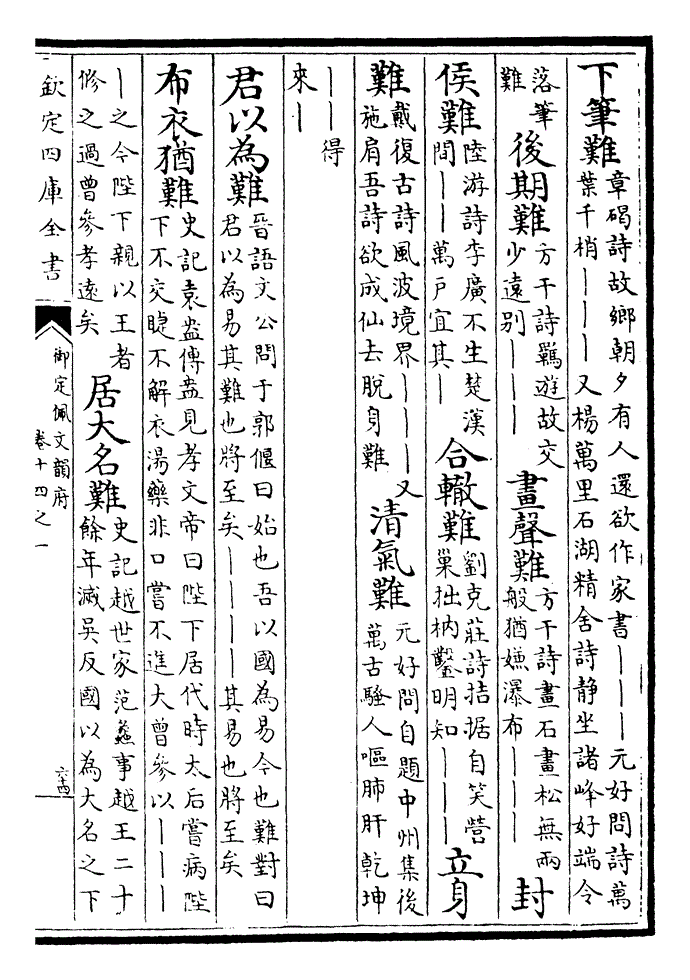 下筆難章碣詩故鄉朝夕有人還欲作家書丨丨丨元好問詩萬
葉千梢丨丨丨又楊萬里石湖精舍詩静坐諸峰好端令
落筆
難後期難方干詩羈遊故交
少遠别丨丨丨畫聲難方干詩畫石畫松無兩
般猶嫌瀑布丨丨丨封
侯難陸游詩李廣不生楚漢
間丨丨萬戸宜其丨合轍難劉克莊詩拮据自笑營
巢拙枘鑿明知丨丨丨立身
難戴復古詩風波境界丨丨丨又
施肩吾詩欲成仙去脱身難清氣難元好問自題中州集後
萬古騷人嘔肺肝乾坤
丨丨得
來丨
君以為難晉語文公問于郭偃曰始也吾以國為易今也難對曰
君以為易其難也將至矣丨丨丨丨其易也將至矣
布衣猶難史記袁盎傳盎見孝文帝曰陛下居代時太后嘗病陛
下不交睫不解衣湯藥非口嘗不進夫曾參以丨丨丨
丨之今陛下親以王者
修之過曾參孝遠矣居大名難史記越世家范蠡事越王二十
餘年滅吳反國以為大名之下
欽定四庫全書
御定佩文韻府
卷十四之一
六十四